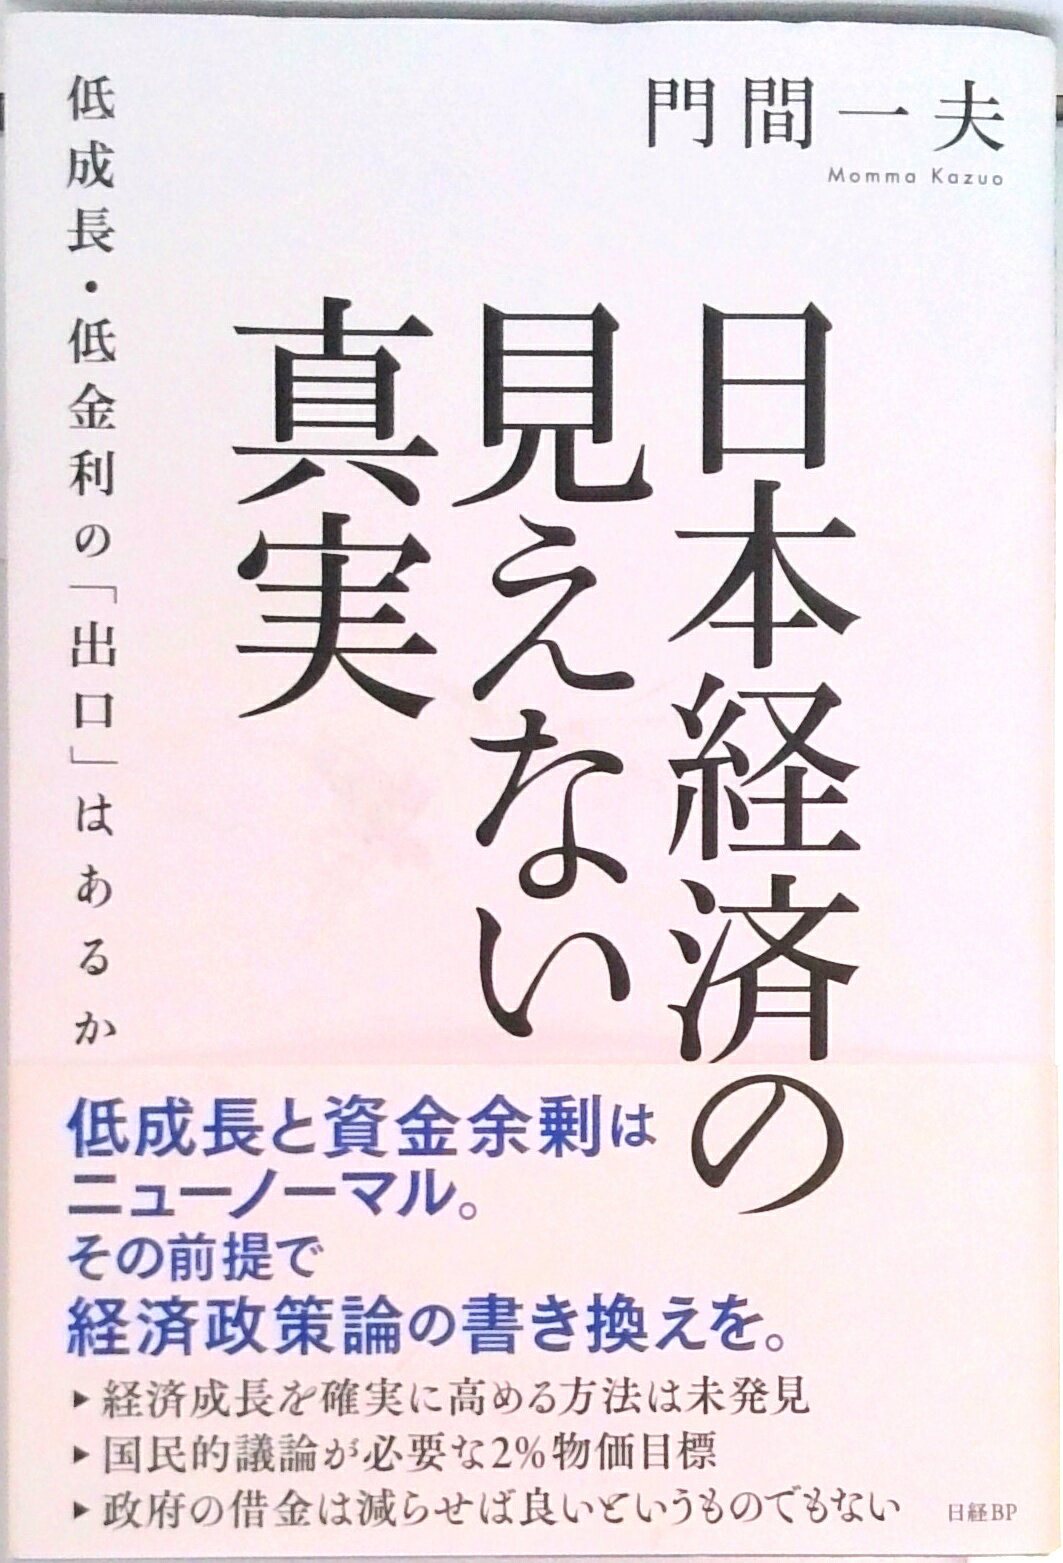 門間一夫
Momma Kazuo
日本経済の
見えない
真実
低成長・低金利の「出口」はあるか
低成長と資金余剰は
ニューノーマル。
その前提で
経済政策論の書き換えを。
▶経済成長を確実に高める方法は未発見
▶国民的議論が必要な2%物価目標
▶政府の借金は減らせば良いというものでもない
日経BP